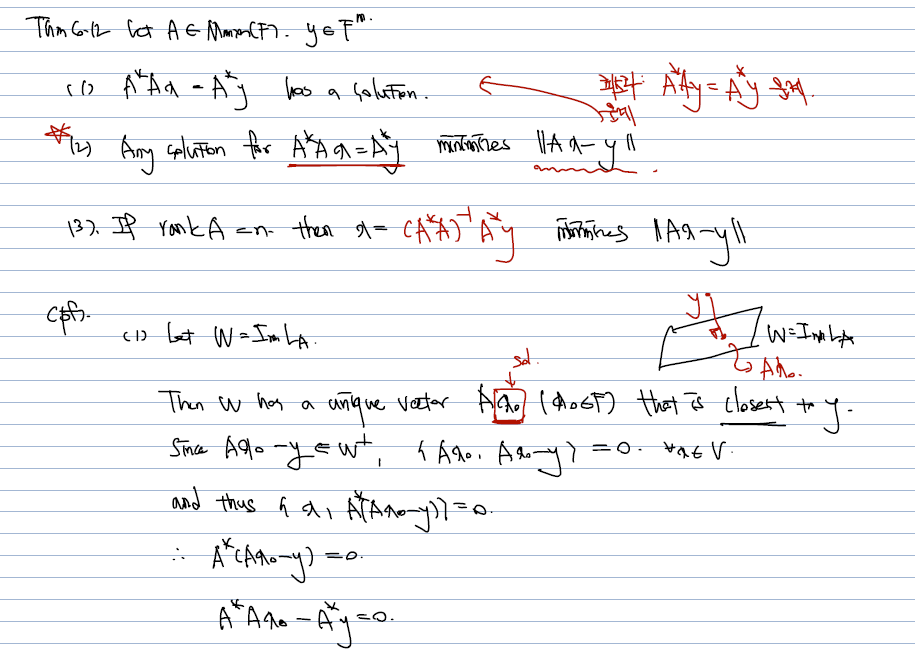 Thm 6.12 Let A ∈ Mmxn(F). y ∈ F^m.
(1) A*Ax = A*y has a solution. : A*Ay = A*y 존재.
존재
☆(2) Any solution for A*Ax = A*y minimizes ||Ax - y||.
(3). If rank A = n. then x = (A*A)^-1 A*y minimizes ||Ax - y||
(pf).
(1) Let W = Im L_A.
y W = Im L_A
Ax₀.
sol.
Then W has a unique vector Ax₀ (x₀∈F) that is closest to y.
Since Ax₀ - y ∈ W^⊥, ⟨Ax₀, Ax₀-y⟩ = 0. ∀x ∈ V.
and thus ⟨x, A*(Ax₀-y)⟩ = 0.
∴ A*(Ax₀-y) = 0.
A*Ax₀ - A*y = 0.